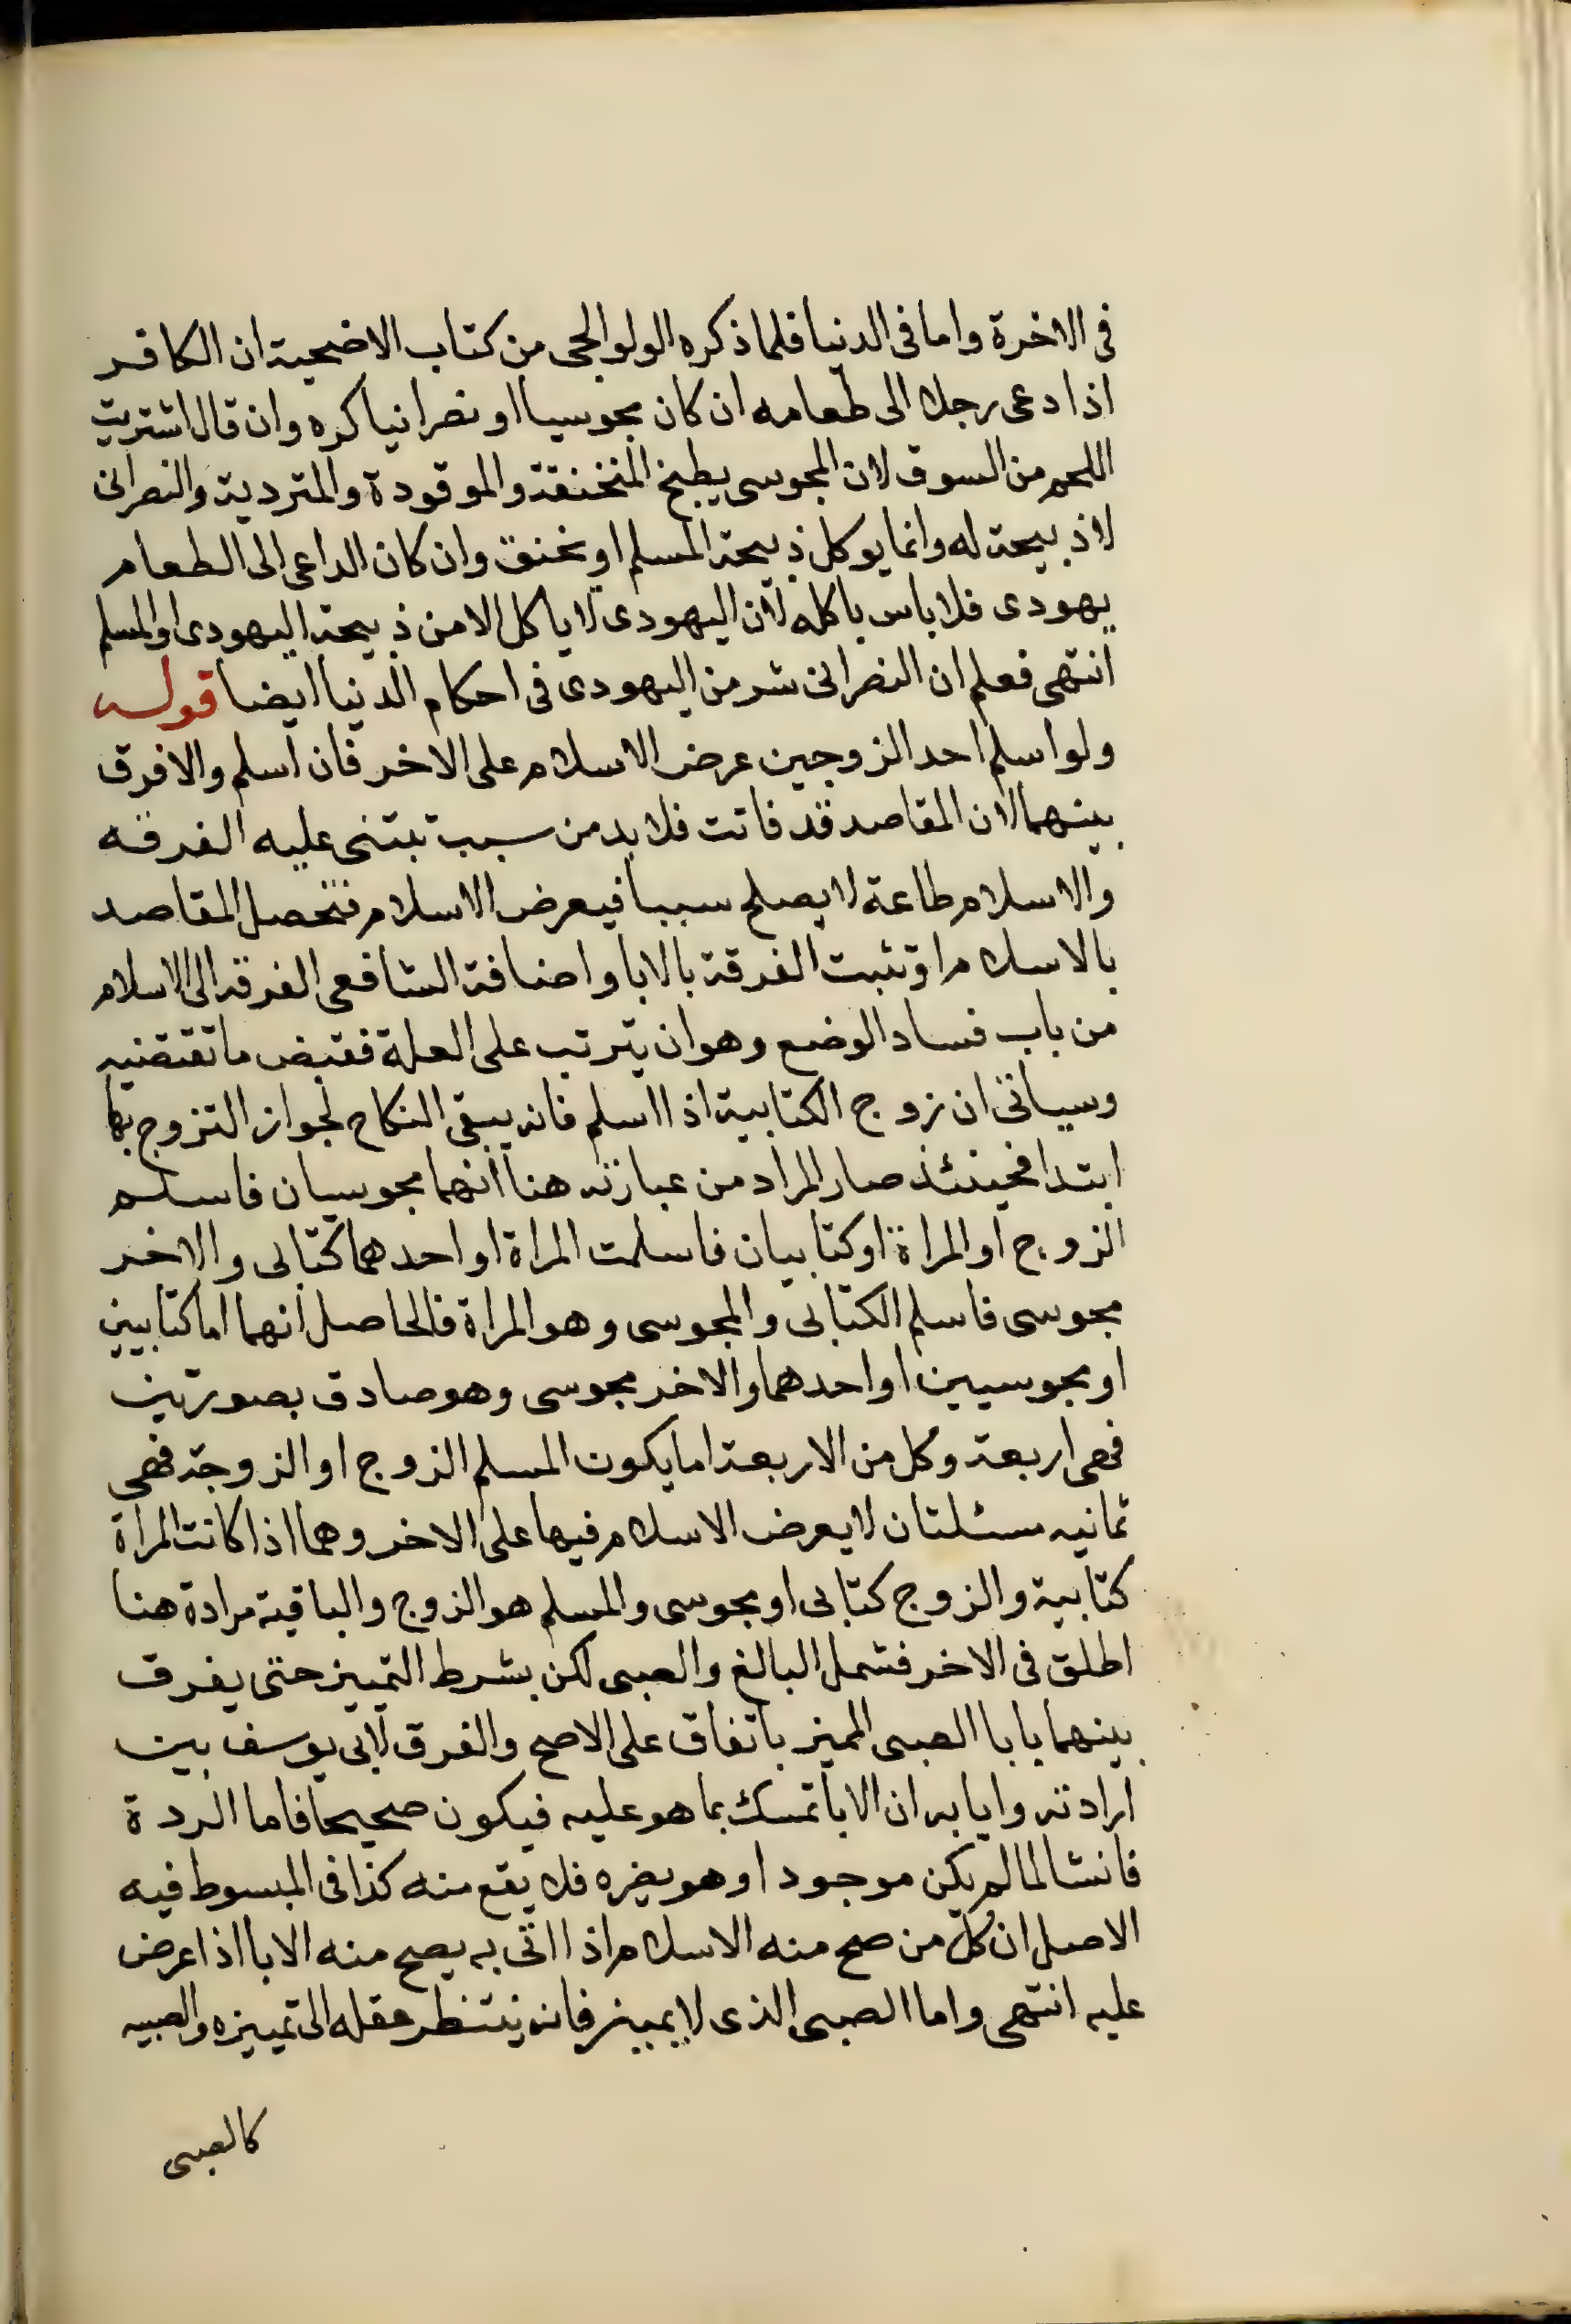 فى الاخرة واما فى الدنيا فلما ذكره الولوالجى من كتاب الاضحية ان الكافر
اذا دعى رجلا الى طعامه ان كان مجوسيا او نصرانيا كره وان قال اشتريت
اللحم من السوق لان المجوسى يطبخ المنخنقة والموقودة والمتردية والنصرانى
لا ذبيحة له وانما يوكل ذبيحة المسلم او يخنق وان كان الداعى الى الطعام
يهودى فلا باس باكله لان اليهودى لا ياكل الا من ذبيحة اليهودى او المسلم
انتهى فعلم ان النصرانى شر من اليهودى فى احكام الدنيا ايضا قوله
ولو اسلم احد الزوجين عرض الاسلام على الاخر فان اسلم والا فرق
بينهما لان المقاصد قد فاتت فلا بد من سبب تبتنى عليه الفرقه
والاسلام طاعة لا يصلح سببا فيعرض الاسلام فتحصل المقاصد
بالاسلام او تثبت الفرقة بالابا واضافة الشافعى الفرقة الى الاسلام
من باب فساد الوضع وهو ان يترتب على العلة فقبض ما تقتضيه
وسياتى ان زوج الكتابية اذا اسلم فانه يبقى النكاح لجواز التزوج بها
ابتدا فحينئذ صار المراد من عبارته هنا انهما مجوسيان فاسلم
الزوج او المراة او كتابيان فاسلمت المراة او احدهما كتابى والاخر
مجوسى فاسلم الكتابى والمجوسى وهو المراة فالحاصل انهما اما كتابيين
او مجوسيين او احدهما والاخر مجوسى وهو صادق بصورتين
فهى اربعة وكل من الاربعة اما يكون المسلم الزوج او الزوجة فهى
ثمانيه مسئلتان لا يعرض الاسلام فيها على الاخر وهما اذا كانت المراة
كتابية والزوج كتابى او مجوسى والمسلم هو الزوج والباقية مرادة هنا
اطلق فى الاخر فشمل البالغ والصبى لكن بشرط التمييز حتى يفرق
بينهما بابا الصبى المميز باتفاق على الاصح والفرق لابى يوسف بين
ارادته وايابه ان الابا تمسك بما هو عليه فيكون صحيحا فاما الردة
فانشا لما لم يكن موجودا وهو يضره فلا يقع منه كذا فى المبسوط فيه
الاصل ان كل من صح منه الاسلام اذا اتى به يصح منه الابا اذا عرض
عليه انتهى واما الصبى الذى لا يميز فانه ينتظر عقله الى تمييزه والصبيه
كالصبى